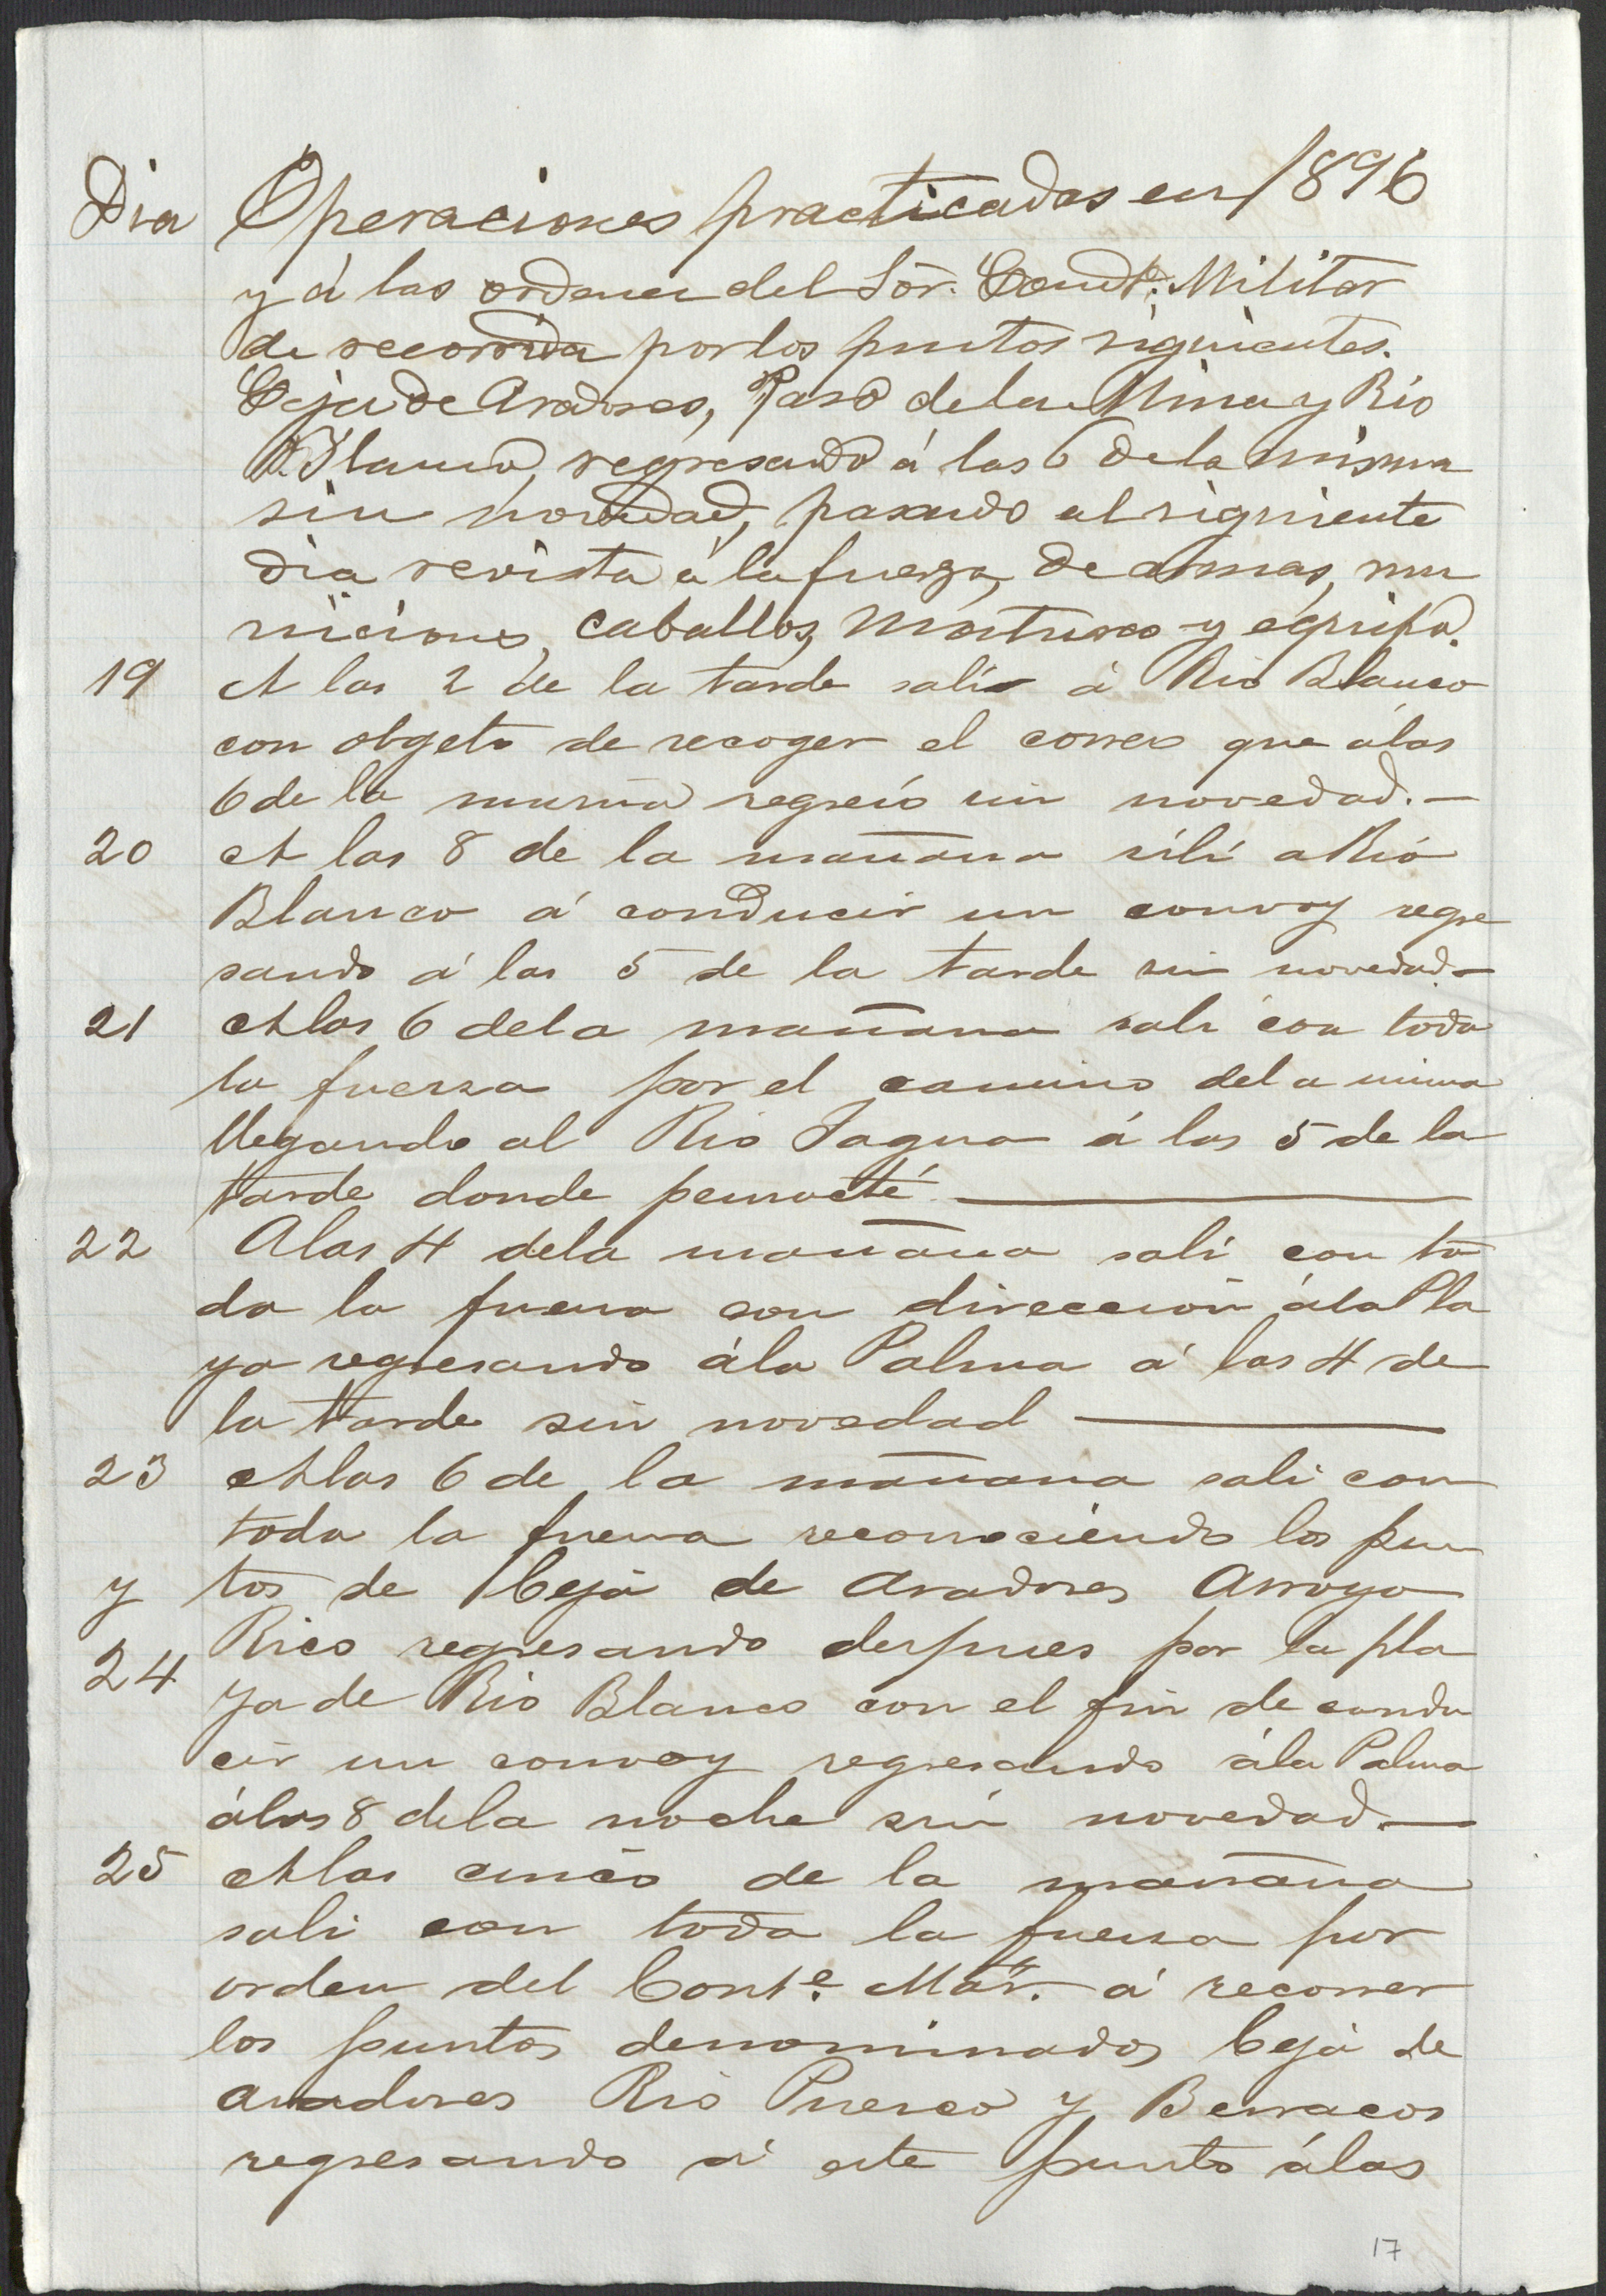 Dia Operaciones practicadas en 1896
y á las ordenes del Sor. Comdte. Militar
de recorrida por los puntos siguientes.
Ceja de Aradores, Paso de la Mina y Rio
Blanco, regresando á las 6 de la misma
sin novedad, pasando al siguiente
dia revista á la fuerza, de armas, mu
niciones, caballos, monturas y equipo.
19 A las 2 de la tarde salio á Rio Blanco
con objeto de recoger el correo que álas
6 de la misma regresó sin novedad.—
20 A las 8 de la mañana sali a Rio
Blanco á conducir un convoy regre
sando á las 5 de la tarde sin novedad—
21 A las 6 de la mañana sali con toda
la fuerza por el camino de la mina
llegando al Rio Jagua á las 5 de la
tarde donde pernocté —
22 A las 4 de la mañana sali con to
da la fuerza con direccion á la Pla
ya regresando á la Palma á las 4 de
la tarde sin novedad —
23 A las 6 de la mañana sali con
toda la fuerza reconociendo los pun
y tos de Ceja de Aradores Arroyo
Rico regresando despues por la pla
24 ya de Rio Blanco con el fin de condu
cir un convoy regresando á la Palma
á las 8 de la noche sin novedad.—
25 A las cinco de la mañana
sali con toda la fuerza por
orden del Comte. Mtar. á recorrer
los puntos denominados Ceja de
Aradores Rio Puerco y Berracos
regresando á este punto á las
17